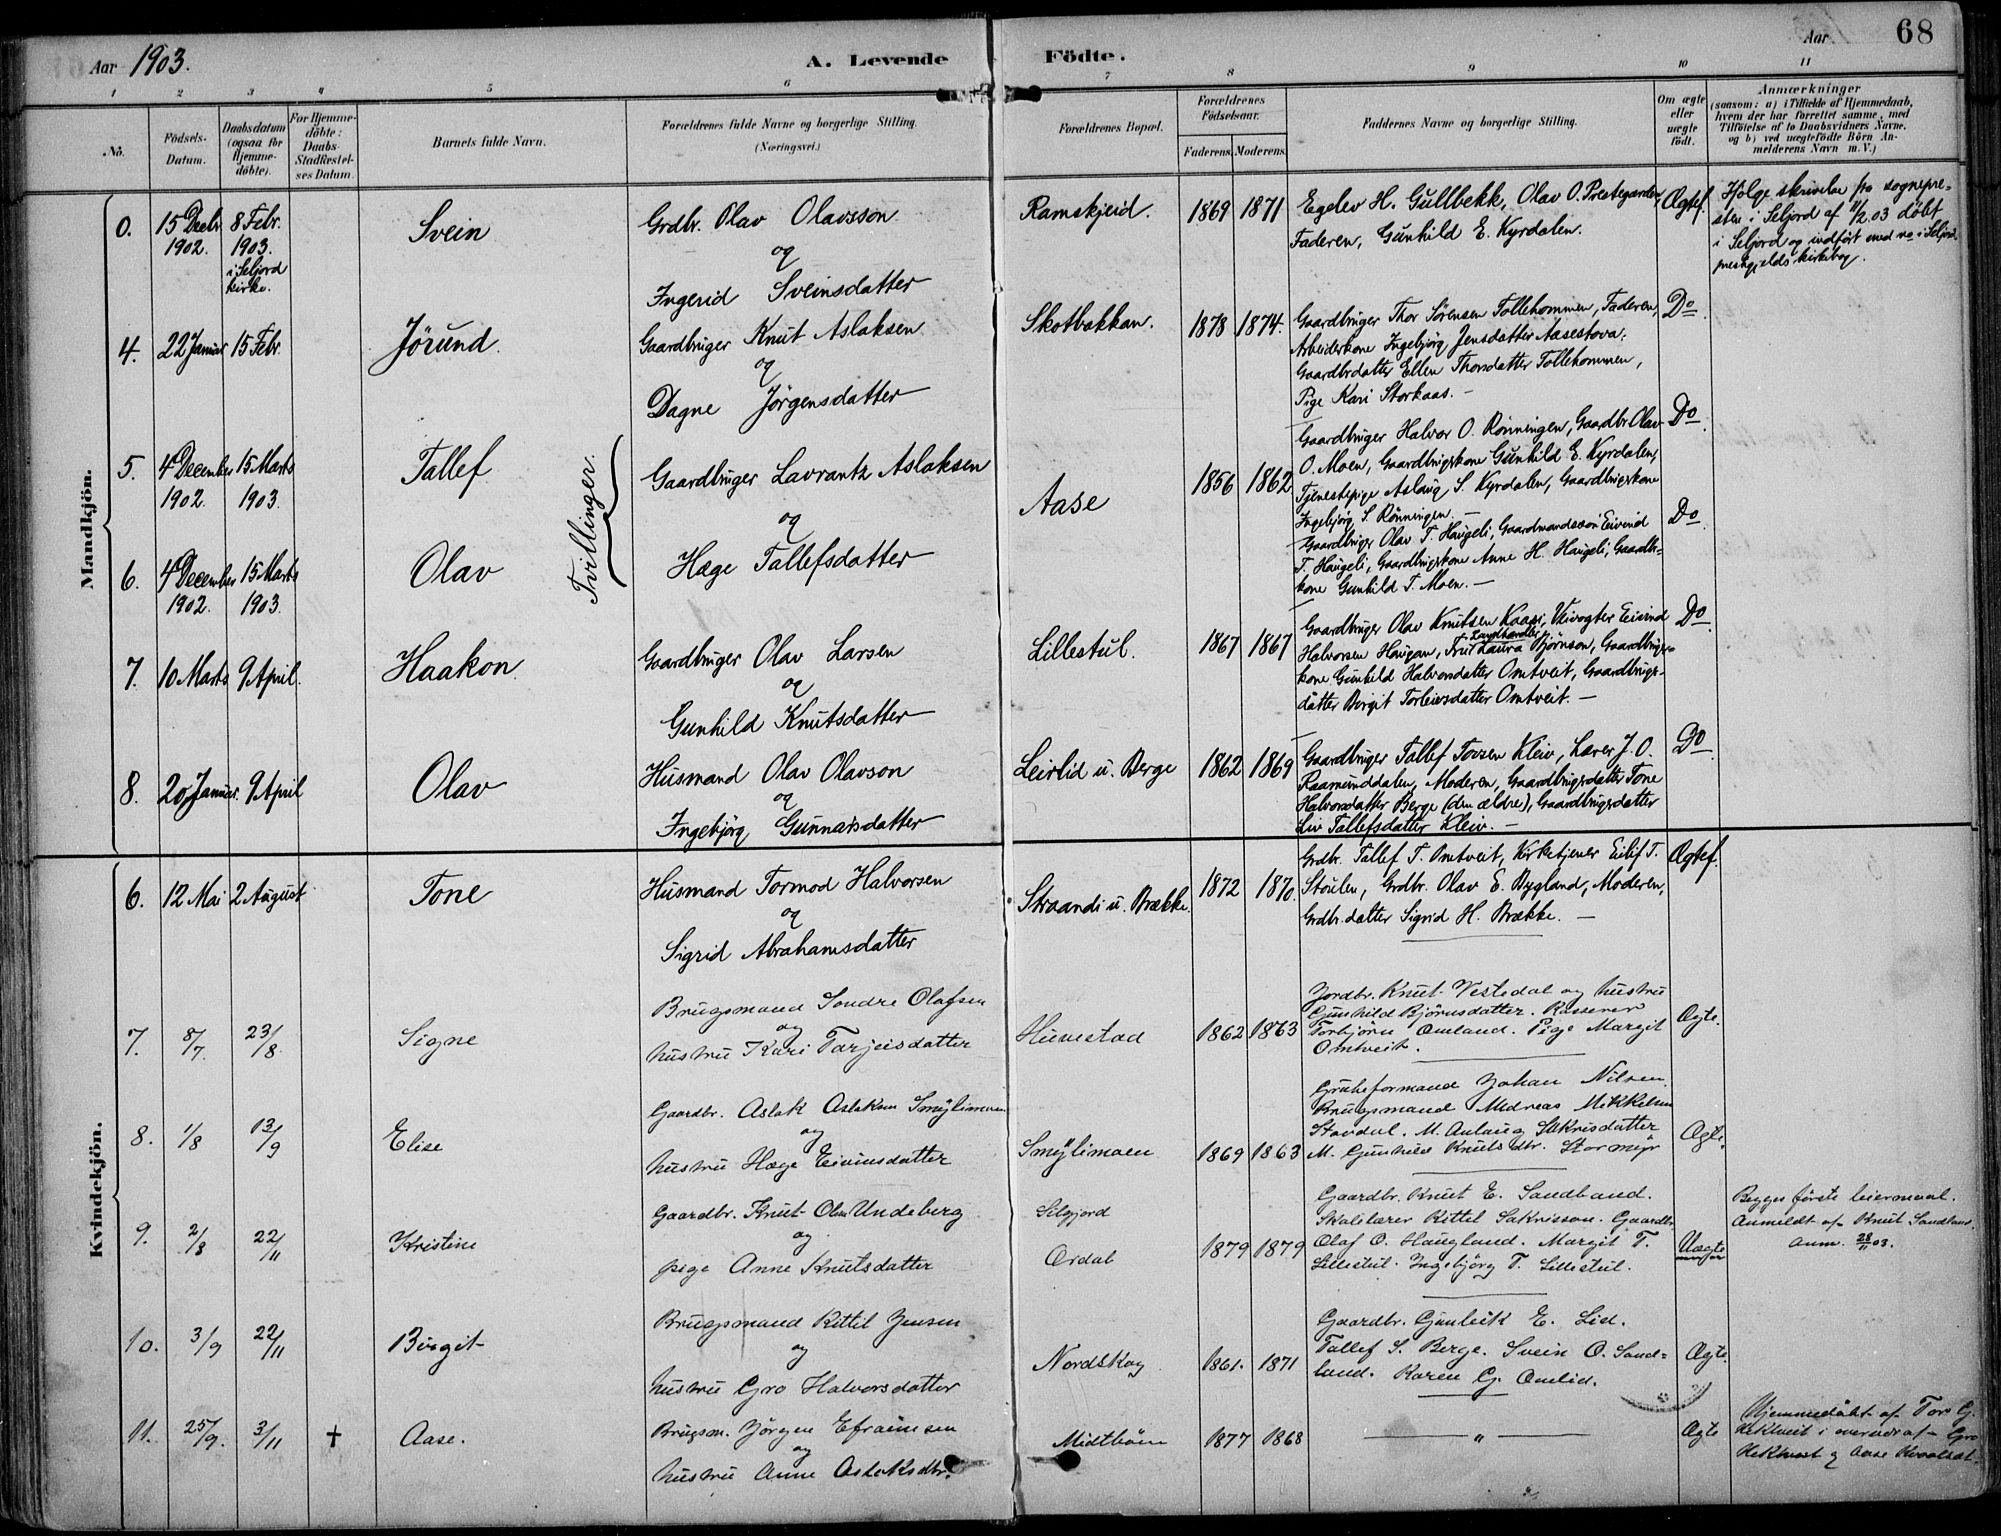 Aar 1903.
A. Levende Födte.
Aar
68
1 2 3 4 5 6 7 8 9 10 11
No.
Födsels-Datum.
Daabsdatum (ogsaa for Hjemme-döbte).
For Hjemme-döbte: Daabs-Stadfæstel-ses Datum.
Barnets fulde Navn.
Forældrenes fulde Navne og borgerlige Stilling. (Næringsvei.)
Forældrenes Bopæl.
Forældrenes Födselsaar.
Faderens. Moderens.
Faddernes Navne og borgerlige Stilling.
Om ægte eller uægte født.
Anmærkninger
(saasom: a) i Tilfælde af Hjemmedaab,
hvem der har forrettet samme, med
Tilföielse af to Daabsvidners Navne,
og b) ved uægtefödte Börn An-
melderens Navn m. V.)
Mandkjön.
0. 15 Decbr. 1902. 8 Febr. 1903. i Seljord kirke.
Svein
Grdbr. Olav Olavsson
og
Ingerid Sveinsdatter
Ramskjeid. 1869 1871
Egelev H. Gullbekk, Olav O. Prestegarden,
Faderen, Gunhild E. Kyrdalen.
Ægtef.
Ifølge skrivelse fra sognepre-
sten i Seljord af 11/2 03 døbt
i Seljord og indført med no i Seljord
prestgjelds kirkebog.
4. 22 Januar 15 Febr.
Jørund.
Gaardbruger Knut Aslaksen
og
Dagne Jörgensdatter
Skotbakkan. 1878 1874.
Gaardbruger Thor Sørensen Tollehommen, Faderen,
Arbeiderkone Ingebjörg Jensdatter Aasestova,
Gaardbrdatter Ellen Thorsdatter Tollehommen,
Pige Kari Storkaas. –
Do
5. 4 December 1902. 15 Marts 1903.
Tallef
Tvillinger.
Gaardbruger Lavrantz Aslaksen
og
Hæge Tallefsdatter
Aase 1856 1862
Gaardbruger Halvor O. Rönningen, Gaardbr Olav
O. Moen, Gaardbrugskone Gunhild E. Kyrdalen,
Tjenestepige Aslaug S. Kyrdalen, Gaardbrugskone
Ingebjörg S. Rönningen. –
Do
6. 4 December 1902. 15 Marts 1903.
Olav
Gaardbruger Olav T. Haugeli, Gaardmandssön Eivind
T. Haugeli, Gaardbrugskone Anne H. Haugeli, Gaardbr-
kone Gunhild T. Moen. –
Do
7. 10 Marts 9 April.
Haakon.
Gaardbruger Olav Larsen
og
Gunhild Knutsdatter
Lillestul. 1867 1867
Gaardbruger Olav Knutsen Kaasi, Veivogter Eivind
Halvorsen Haugan, Fru Landhandler Laura Björnson, Gaardbruger-
kone Gunhild Halvorsdatter Omtveit, Gaardbrugs-
datter Birgit Torleivsdatter Omtveit. –
Do
8. 20 Januar. 9 April
Olav
Husmand Olav Olavson
og
Ingebjörg Gunnarsdatter
Leirlid u. Berge 1862 1869
Gaardbruger Tallef Tovsen Kleiv, Lærer J. O.
Raamunddalen, Moderen, Gaardbrugsdatter Tone
Halvorsdatter Berge (den ældre), Gaardbrugsdatter
Liv Tallefsdatter Kleiv. –
Do
Kvindekjön.
6. 12 Mai 2 August
Tone
Husmand Tormod Halvorsen
og
Sigrid Abrahamsdatter
Straandi u. Brække. 1872 1870.
Grdbr. Tallef T. Omtveit, Kirketjener Eilef T.
Stoulen, Grdbr. Olav E. Bygland, Moderen,
Grdbr.datter Sigrid H. Brække. –
Ægtef.
7. 8/7. 23/8.
Signe
Brugsmand Sondre Olafsen
og
hustru Kari Tarjeisdatter
Hunestad 1862 1863
Jordbr. Knut Vestedal og hustru
Gunhild Björnsdatter. Kasserer
Torbjörn Omland. Pige Margit
Omtveit.
Ægte.
8. 1/8 13/9
Elise
Gaardbr. Aslak Aslaksen Smylimoen
og
hustru Hæge Eivindsdatter
Smylimoen 1869 1863
Grubeformand Johan Nilsen.
Brugsmand Andreas Mikkelsen
Stordal. M. Aslaug Sakrisdatter
M. Gunhild Knutsdtr. Stormyr
Ægte.
9. 2/8 22/11
Kristine
Gaardbr. Knut Olsen Undeberg
og
pige Anne Knutsdatter
Silgjord
Ordal 1879 1879
Gaardbr. Knut E. Sandland.
Skolelærer Kittel Sakrisson. Gaardbr.
Olaf O. Haugland. Margit T.
Lillestul. Ingebjörg T. Lillestul.
Uægte
Begges første leiermaal.
Anmeldt af Knut Sandland.
Anm. 28/11 03.
10. 3/9 22/11
Birgit
Brugsmand Kittil Jensen
og
hustru Gro Halvorsdatter
Nordskog 1861. 1871
Gaardbr. Gunleik E. Lid.
Tallef S. Berge. Svein O. Sand-
land. Karen G. Omlid.
Ægte.
11. 25/9. 3/11 †
Aase.
Brugsm. Jörgen Efraimsen
og
hustru Anne Aslaksdtr.
Midtbøen 1877 1868
"
Ægte
Hjemmedöbt af Tor G.
Hektveit i overvær af Gro
Hektveit og Aase